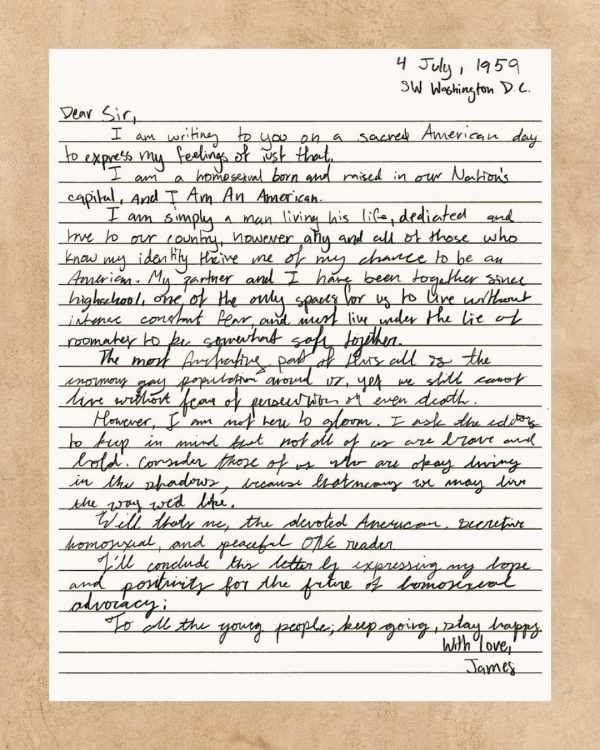 4 July, 1959
SW Washington D.C.
Dear Sir,
I am writing to you on a sacred American day
to express my feelings of just that.
I am a homosexual born and raised in our Nation's
capital, and I Am An American.
I am simply a man living his life, dedicated and
true to our country, however any and all of those who
know my identity thieve me of my chance to be an
American. My partner and I have been together since
highschool, one of the only spaces for us to live without
intense constant fear, and must live under the lie of
roomates to be somewhat safe together.
The most frustrating part of this all is the
enormous gay population around us, yet we still cannot
live without fear of persecution or even death.
However, I am not here to gloom. I ask the editors
to keep in mind that not all of us are brave and
bold. Consider those of us who are okay living
in the shadows, because that means we may live
the way we'd like.
Well thats me, the devoted American, secretive
homosexual, and peaceful ONE reader
I'll conclude this letter by expressing my hope
and positivity for the future of homosexual
advocacy;
To all the young people; keep going, stay happy.
With love,
James